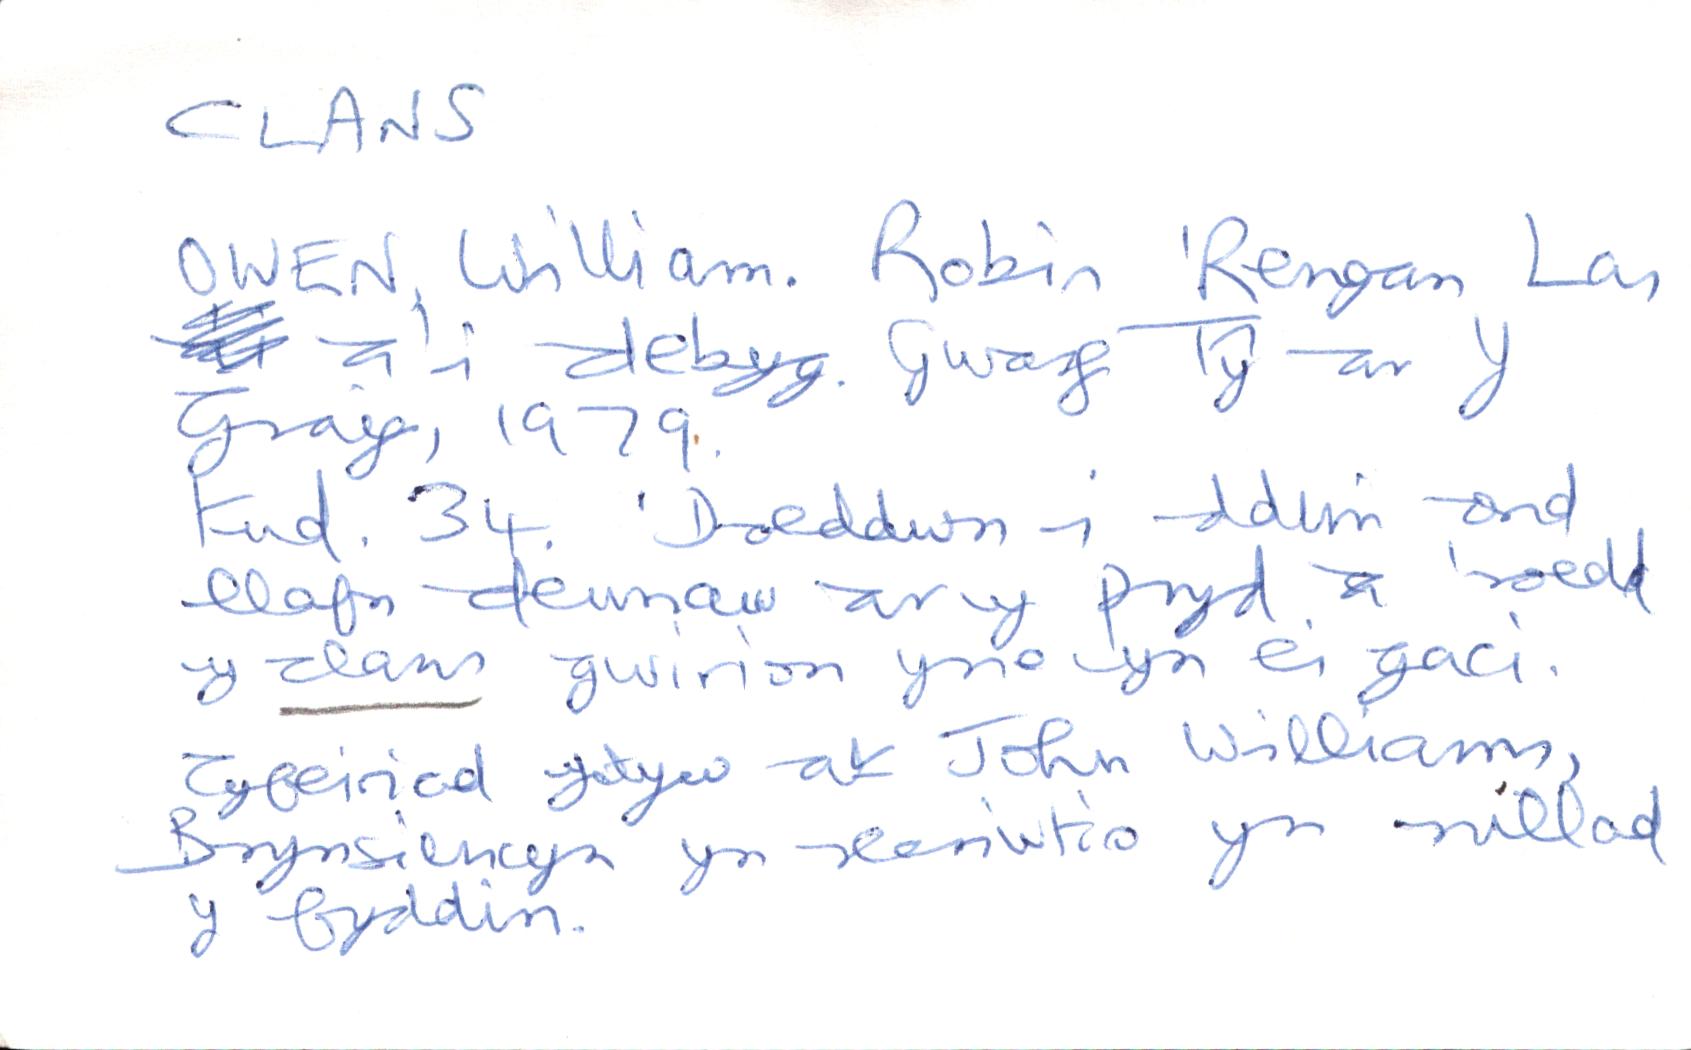 CLANS
OWEN, William. Robin 'Rengan Las
a'i debyg. Gwasg Tŷ ar y
Graig, 1979.
Tud. 34. 'Doeddwn i ddim ond
llafn deunaw ar y pryd a 'roedd
y clans gwirion yno yn ei gaci.
Cyfeiriad ydyw at John Williams,
Brynsiencyn yn recriwtio yn nillad
y fyddin.